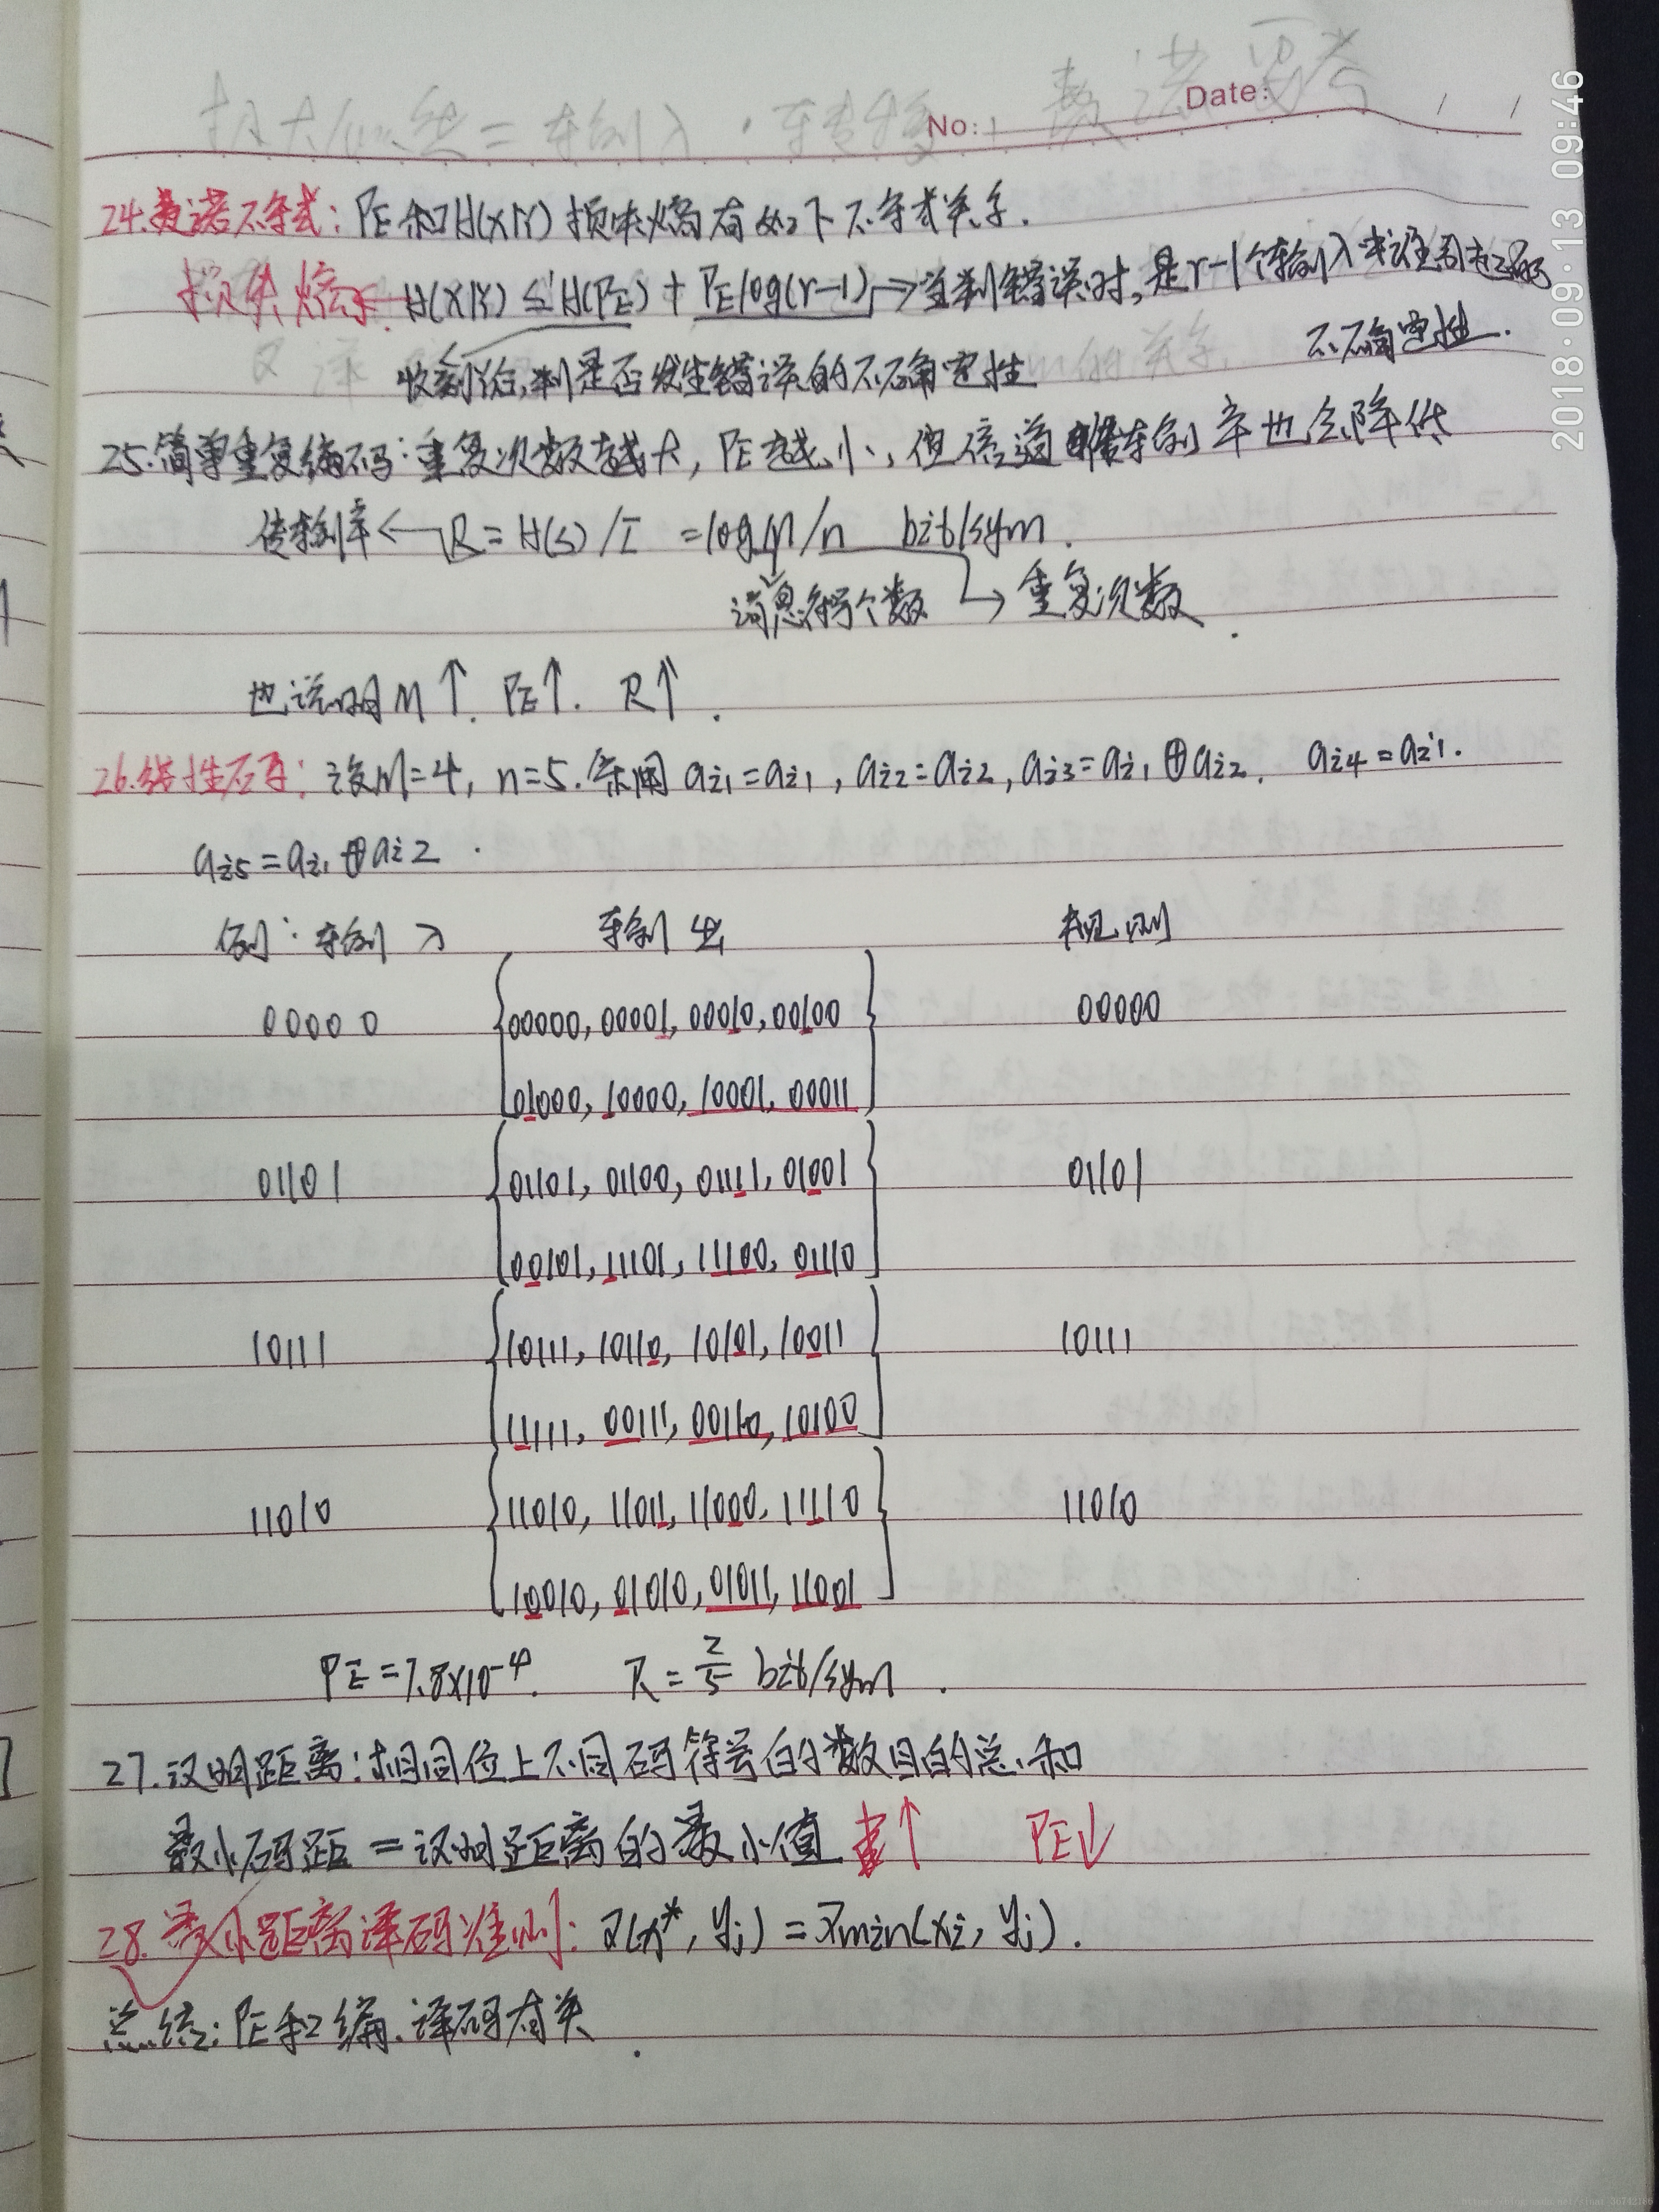 No:
Date:
2018·09·13 09:46
24.费诺不等式: PE和H(X|Y)损失熵有如下不等式关系.
损失熵← H(X|Y) ≤ H(PE) + PElog(r-1) → 当判错误时,是r-1个输入中谁引起的
不确定性.
收到Y后,判是否发生错误的不确定性
25.简单重复编码: 重复次数越大, PE越小, 但信道传输率也会降低
传输率 ← R = H(S)/I = logM/n bit/sym.
消息符号个数 → 重复次数
也说明 M↑. PE↑. R↑.
26.线性码: 设M=4, n=5. 采用 ai1=ai1, ai2=ai2, ai3=ai1⊕ai2. ai4=ai1.
ai5=ai1⊕ai2.
例: 输入 输出 规则
00000 {00000, 00001, 00010, 00100 00000
01000, 10000, 10001, 00011}
01101 {01101, 01100, 01111, 01001 01101
00101, 11101, 11100, 01110}
10111 {10111, 10110, 10101, 10011 10111
11111, 00111, 00110, 10100}
11010 {11010, 11011, 11000, 11110 11010
10010, 01010, 01011, 11001}
PE=7.8×10⁻⁴. R=2/5 bit/sym.
27.汉明距离: 相同位上不同码符号的数目的总和
最小码距 = 汉明距离的最小值 ↑ PE↓
28.最小距离译码准则: D(x*, yj) = Dmin(xi, yj).
总结: PE和编.译码有关.